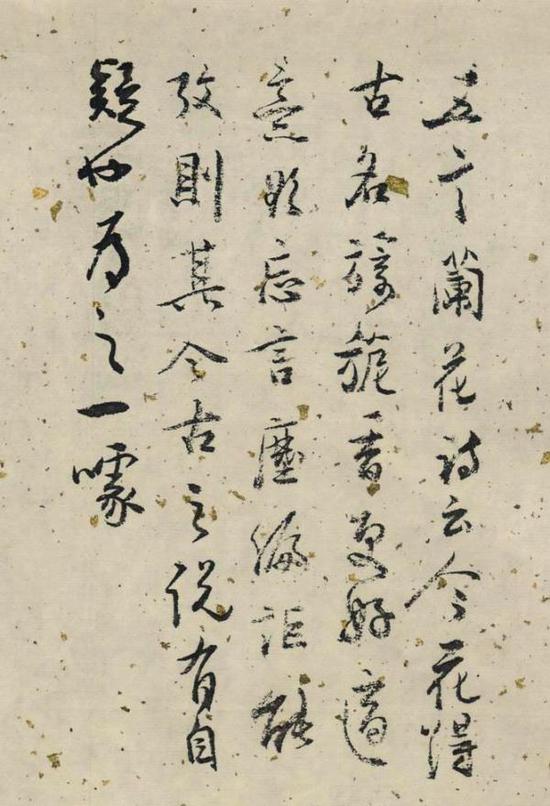 五言蘭花詩云今花得
古名旖旎香更好適
意欲忘言塵編詎能
攷則其今古之說有自
疑也為之一噱